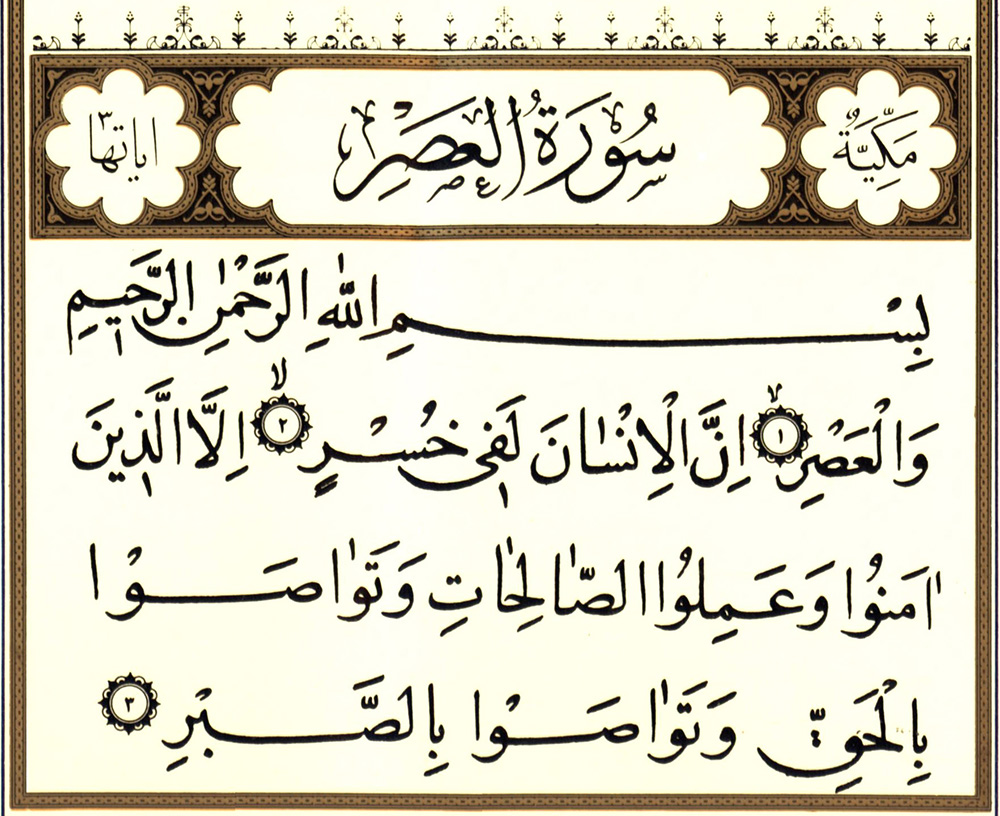 مَكِّيَّةٌ سُورَةُ الْعَصْرِ اٰيَاتُهَا ٣
بِسْمِ اللّٰهِ الرَّحْمٰنِ الرَّحِيمِ
وَالْعَصْرِ ١ اِنَّ الْاِنْسَانَ لَفِى خُسْرٍ ٢ اِلَّا الَّذِينَ
اٰمَنُوا وَعَمِلُوا الصَّالِحَاتِ وَتَوَاصَوْا
بِالْحَقِّ وَتَوَاصَوْا بِالصَّبْرِ ٣